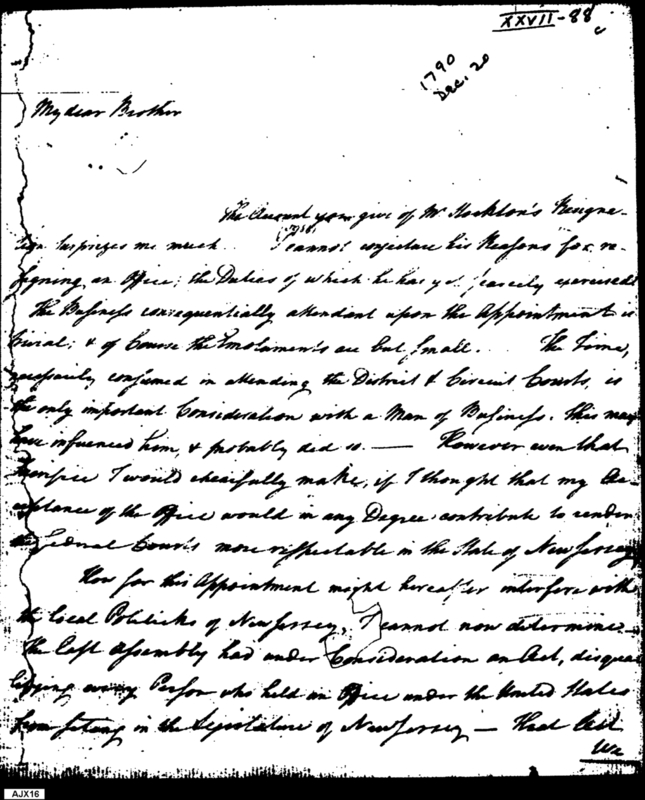 XXVII-88
c
1790
Dec. 20
My dear Brother
The Account you give of Mr Stockton's Resigna-
tion surprizes me much. I cannot conjecture his Reasons for re-
signing an Office; the Duties of which he has yet scarcely exercised
The Business consequentially attendant upon the Appointment is
trivial; & of Course the Emoluments are but small. The Time,
necessarily consumed in attending the District & Circuit Courts, is
the only important Consideration with a Man of Business. This may
have influenced him, & probably did so. — However even that
Sacrifice I would chearfully make, if I thought that my Ac-
ceptance of the Office would in any Degree contribute to render
the Federal Courts more respectable in the State of New Jersey
How far this Appointment might hereafter interfere with
the local Politicks of New Jersey, I cannot now determine —
The last Assembly had under Consideration an Act, disqua-
lifying every Person who held an Office under the United States
from sitting in the Legislature of New Jersey — Had
We
AJX16